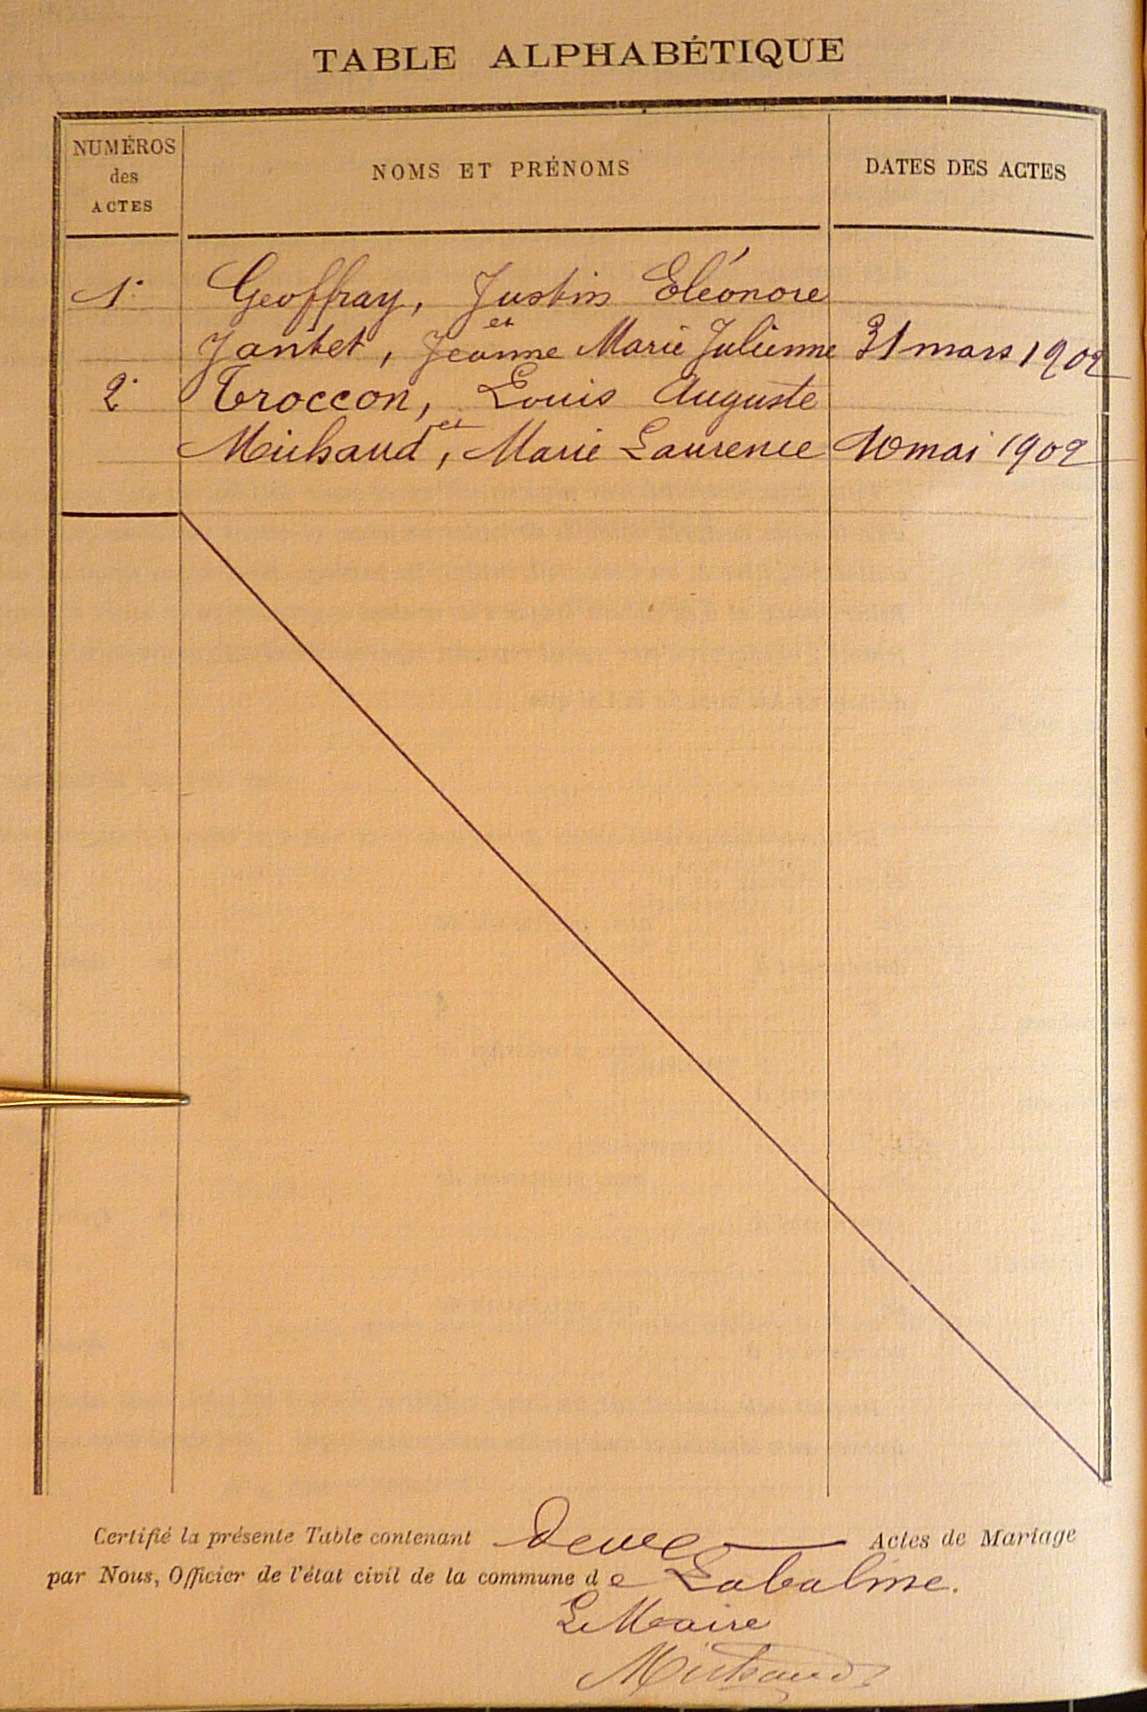 TABLE ALPHABÉTIQUE
NUMÉROS
des
ACTES
NOMS ET PRÉNOMS
DATES DES ACTES
1° Geoffray, Justin Eléonore
et
Jantet, Jeanne Marie Julienne 31 mars 1902
2° Troccon, Louis Auguste
et
Michaud, Marie Laurence 10 mai 1902
Certifié la présente Table contenant deux Actes de Mariage
par Nous, Officier de l'état civil de la commune de Labalme.
Le Maire
Michaud